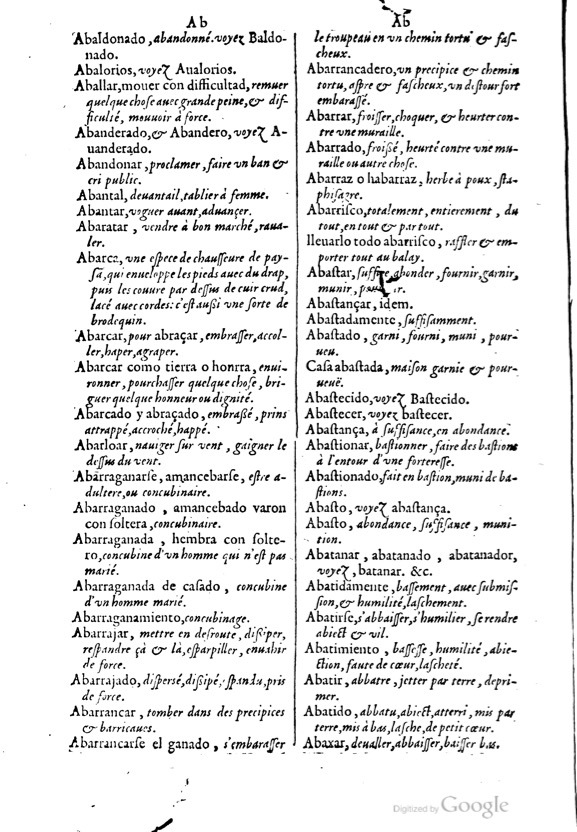 Ab
Abaldonado, abandonné. voyez Baldo-
nado.
Abalorios, voyez Aualorios.
Aballar, mouer con difficultad, remuer
quelque chose auec grande peine, & dif-
ficulté, mouuoir à force.
Abanderado, & Abandero, voyez A-
uanderado.
Abandonar, proclamer, faire un ban &
cri public.
Abantal, deuantail, tablier à femme.
Abantar, voguer auant, aduançer.
Abaratar, vendre à bon marché, raua-
ler.
Abarca, vne espece de chausseure de pay-
sā, qui enueloppe les pieds auec du drap,
puis les couure par dessus de cuir crud,
lacé auec cordes: c'est außi vne sorte de
brodequin.
Abarcar, pour abraçar, embrasser, accol-
ler, haper, agraper.
Abarcar como tierra o honrra, enui-
ronner, pourchasser quelque chose, bri-
guer quelque honneur ou dignité.
Abarcado y abraçado, embraßé, prins
attrappé, accroché, happé.
Abarloar, nauiger sur vent, gaigner le
dessus du vent.
Abarraganarse, amancebarse, estre a-
dultere, ou concubinaire.
Abarraganado, amancebado varon
con soltera, concubinaire.
Abarraganada, hembra con solte-
ro, concubine d'vn homme qui n'est pas
marié.
Abarraganada de casado, concubine
d'vn homme marié.
Abarraganamiento, concubinage.
Abarrajar, mettre en desroute, dißiper,
respandre çà & là, esparpiller, enuahir
de force.
Abarrajado, dispersé, dißipé, pris
de force.
Abarrancar, tomber dans des precipices
& barricaues.
Abarrancarse el ganado, s'embarasser
Ab
le troupeau en un chemin tortu & fas-
cheux.
Abarrancadero, vn precipice & chemin
tortu, aspre & fascheux, vn destour fort
embarassé.
Abarrar, froisser, choquer, & heurter con-
tre vne muraille.
Abarrado, froißé, heurté contre vne mu-
raille ou autre chose.
Abarraz o habarraz, herbe à poux, sta-
phisagre.
Abarrisco, totalement, entierement, du
tout, en tout & par tout.
lleuarlo todo abarrisco, raffler & em-
porter tout au balay.
Abastar, suffire, abonder, fournir, garnir,
munir,
Abastançar, idem.
Abastadamente, suffisamment.
Abastado, garni, fourni, muni, pour-
ueu.
Casa abastada, maison garnie & pour-
ueuë.
Abastecido, voyez Bastecido.
Abastecer, voyez bastecer.
Abastança, à suffisance, en abondance.
Abastionar, bastionner, faire des bastions
à l'entour d'vne forteresse.
Abastionado, fait en bastion, muni de ba-
stions.
Abasto, voyez abastança.
Abasto, abondance, suffisance, muni-
tion.
Abatanar, abatanado, abatanador,
voyez, batanar. &c.
Abatidamente, bassement, auec submis-
sion, & humilité, laschement.
Abatirse, s'abbaisser, s'humilier, se rendre
abiect & vil.
Abatimiento, bassesse, humilité, abie-
ction, faute de cœur, lascheté.
Abatir, abbatre, jetter par terre, depri-
mer.
Abatido, abbatu, abiect, atterri, mis par
terre, mis à bas, lasche, de petit cœur.
Abaxar, deualler, abbaisser, baisser bas.
Digitized by Google